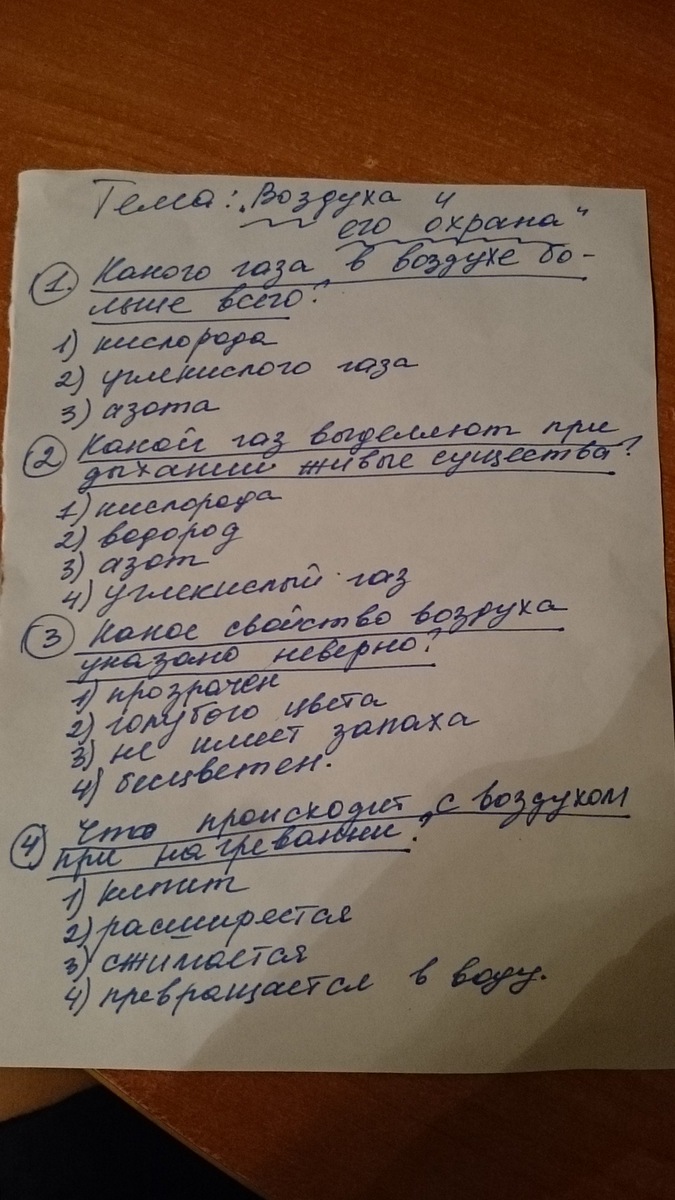 Тема: „Воздуха и
его охрана“
1. Какого газа в воздухе бо-
льше всего?
1) кислорода
2) углекислого газа
3) азота
2 Какой газ выделяют при
дыхании живые существа?
1) кислорода
2) водород
3) азот
4) углекислый газ
3 Какое свойство воздуха
указано неверно?
1) прозрачен
2) голубого цвета
3) не имеет запаха
4) бесцветен.
4 Что происходит с воздухом
при нагревании?
1) кипит
2) расширяется
3) сжимается
4) превращается в воду.